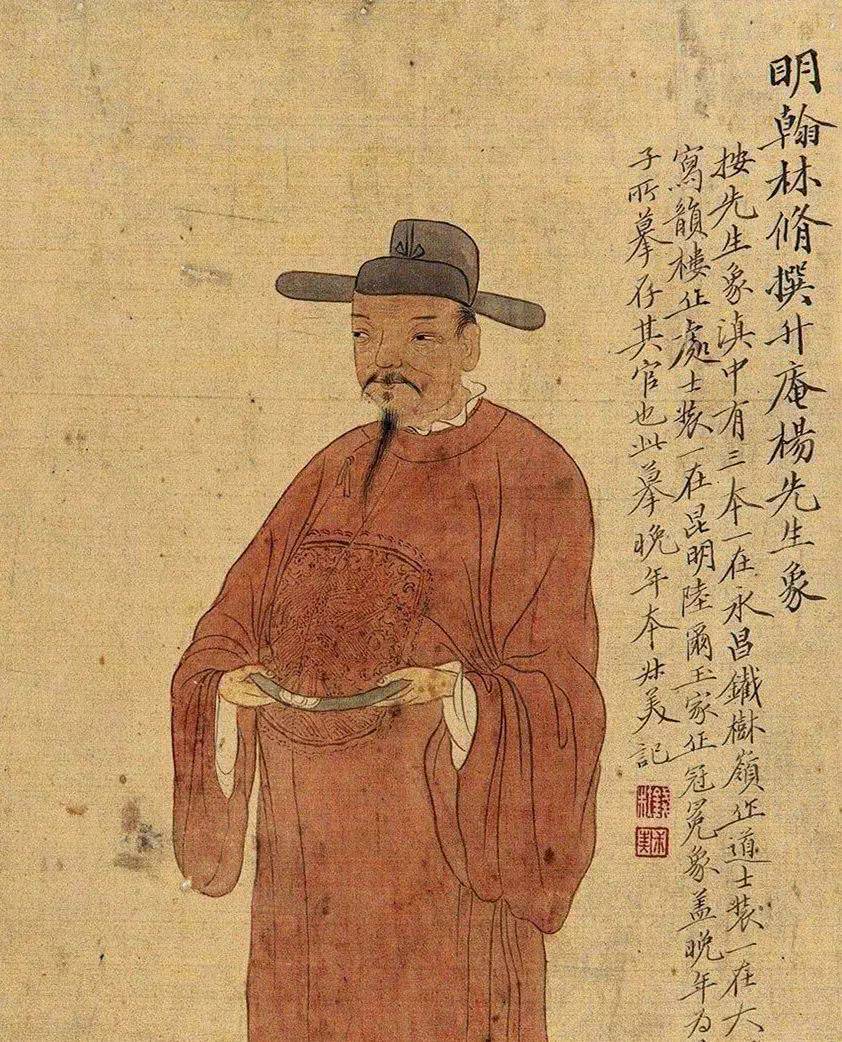 明翰林脩撰升庵楊先生象
按先生象滇中有三本一在永昌鐵樹嶺作道士裝一在大
寫韻樓作處士裝一在昆明陸爾玉家作冠冕象蓋晚年為
子所摹存其官也此摹晚年本尗美記